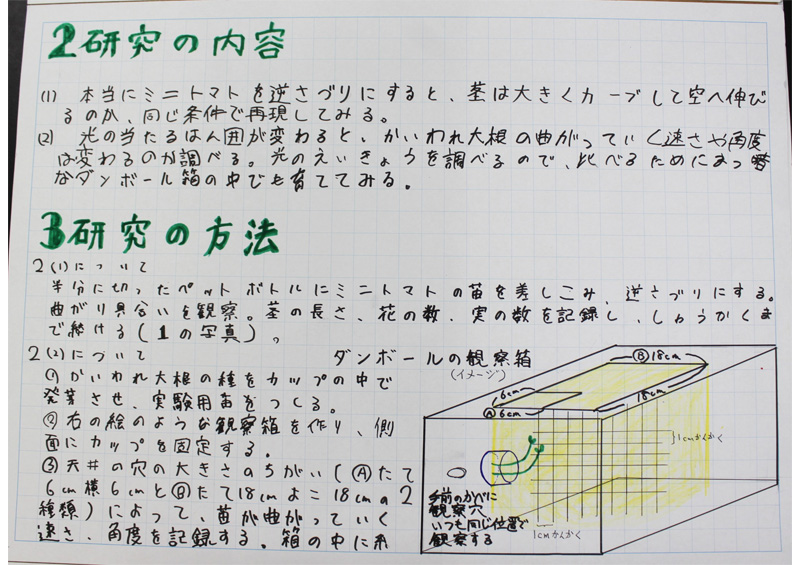 2研究の内容
(1) 本当にミニトマトを逆さづりにすると、茎は大きくカーブして空へ伸び
るのか、同じ条件で再現してみる。
(2) 光の当たるはん囲が変わると、かいわれ大根の曲がっていく速さや角度
は変わるのか調べる。光のえいきょうを調べるので、比べるためにまっ暗
なダンボール箱の中でも育ててみる。
3研究の方法
2(1)について
半分に切ったペットボトルにミニトマトの苗を差しこみ、逆さづりにする。
曲がり具合いを観察。茎の長さ、花の数、実の数を記録し、しゅうかくま
で続ける(1の写真)。
2(2)について
①かいわれ大根の種をカップの中で
発芽させ、実験用苗をつくる。
②右の絵のような観察箱を作り、側
面にカップを固定する。
③天井の穴の大きさのちがい(Ⓐたて
6cm横6cmとⒷたて18cmよこ18cmの2
種類)によって、苗が曲がっていく
速さ、角度を記録する。箱の中に糸
ダンボールの観察箱
(イメージ)
Ⓑ18cm
6cm
18cm
Ⓐ6cm
1cmかんかく
手前のかべに
観察穴
いつも同じ位置で
観察する
1cmかんかく